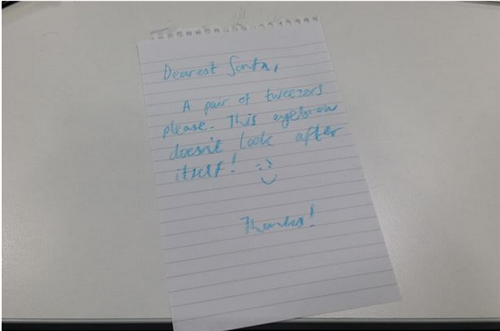 Dearest Santa,
A pair of tweezers
please. This eyebrow
doesn't look after
itself! :)
Thanks!